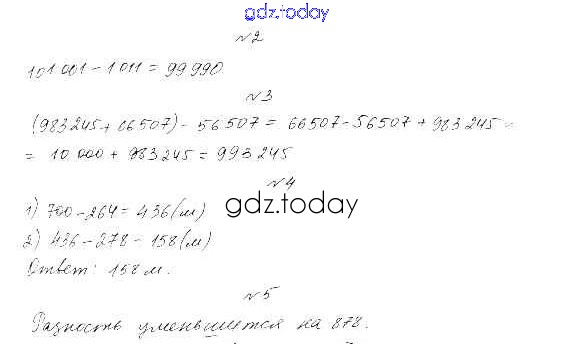 gdz.today
№2
101 001 - 1 011 = 99 990
№3
(983 245 + 66 507) - 56 507 = 66 507 - 56 507 + 983 245 =
= 10 000 + 983 245 = 993 245
№4
1) 700 - 264 = 436 (м)
gdz.today
2) 436 - 278 - 158 (м)
Ответ: 158 м.
№5
Разность уменьшится на 878.